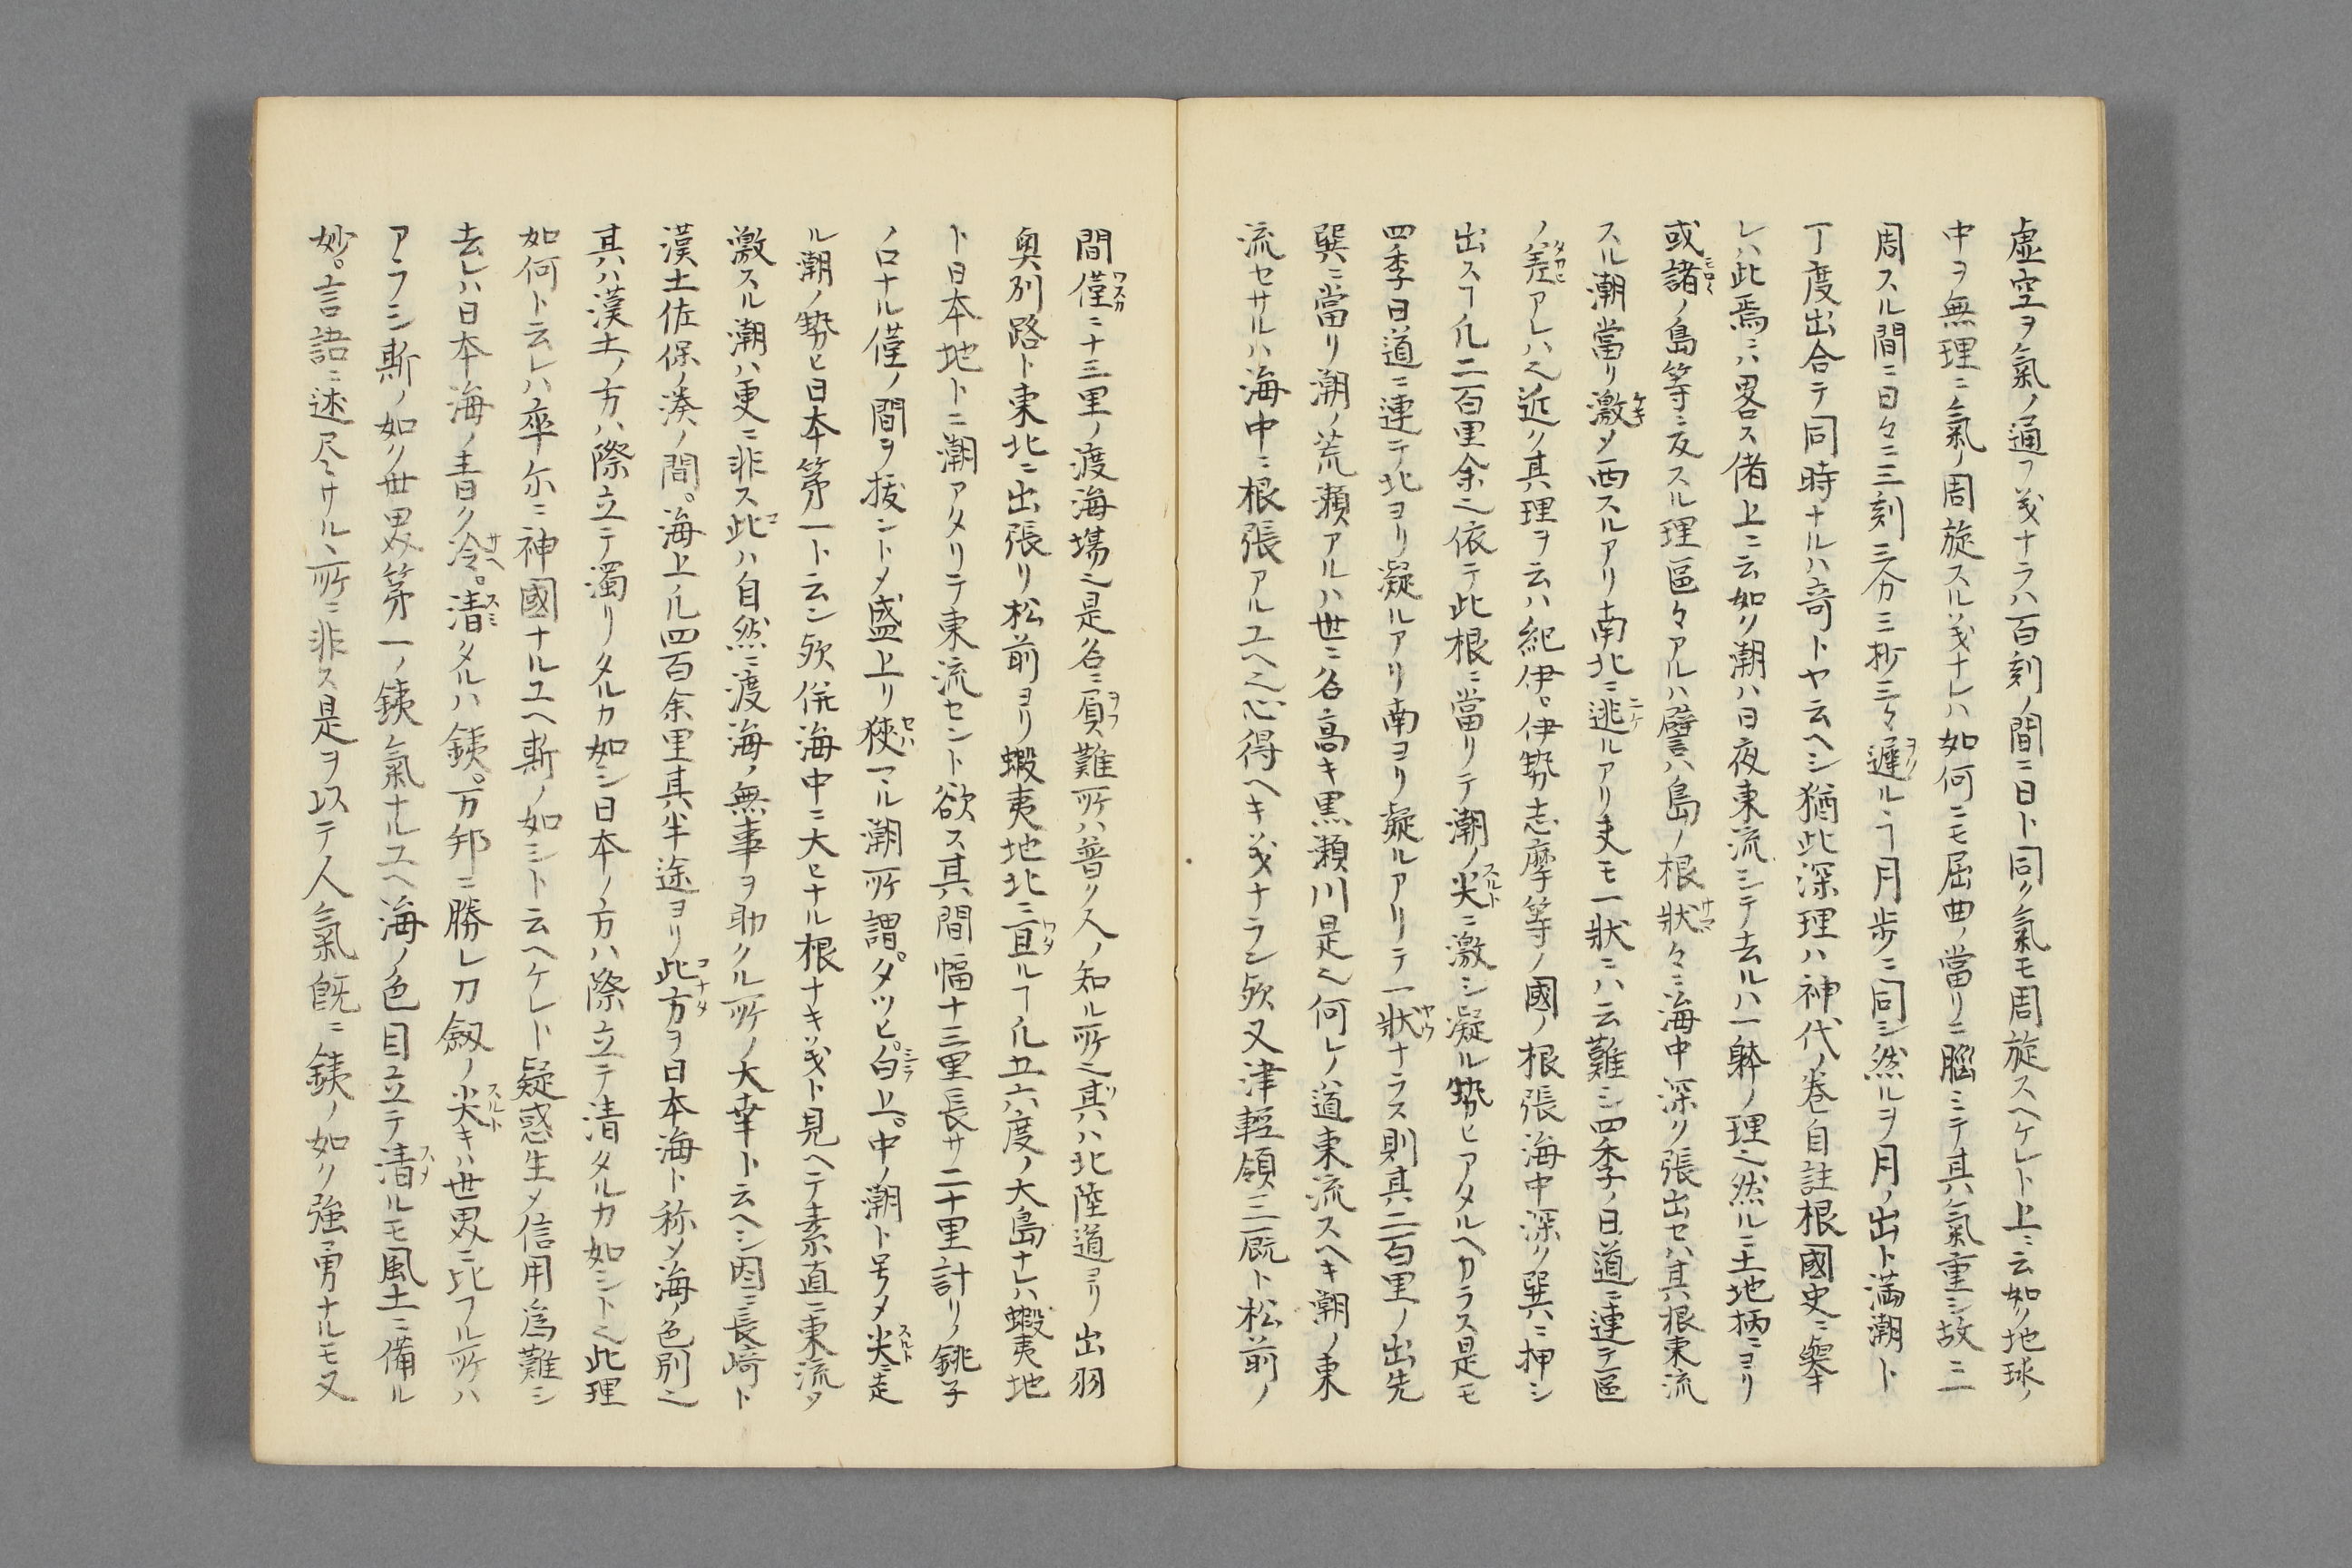 虚空ヲ氣ノ通フ義ナラハ百刻ノ間ニ日ト同ク氣モ周旋スヘケレト上ニ云如ク地球ノ
中ヲ無理ニ氣ノ周旋スル義ナレハ如何ニモ屈曲ノ當リニ腦ミテ其ハ氣重シ故ニ一
周スル間ニ日々ニ三刻三分三抄三々遲ルヿ月歩ニ同シ然ルヲ月ノ出ト満潮ト
丁度出合テ同時ナルハ奇トヤ云ヘシ猶此深理ハ神代ノ巻自註根國史ニ挙
レハ此焉ニハ畧ス偖上ニ云如ク潮ハ日夜東流シテ去ルハ一躰ノ理也然ルニ土地柄ニヨリ
或諸ノ島等ニ反スル理區々アルハ譬ハ島ノ根狀々ニ海中深ク張出セハ其根東流
スル潮當リ激メ西スルアリ南北ニ逃ルアリ夫モ一狀ニハ云難シ四季ノ日道ニ連テ區
ノ差アレハ也近ク其理ヲ云ハ紀伊。伊勢志摩等ノ國ノ根張海中深ク巽ニ押シ
出スヿ凡二百里余也依テ此根ニ當リテ潮ノ尖ニ激シ凝ル勢ヒアタルヘカラス是モ
四季日道ニ連テ北ヨリ凝ルアリ南ヨリ凝ルアリテ一狀ナラス則其二百里ノ出先
巽ニ當リ潮ノ荒瀬アルハ世ニ名高キ黒瀬川是也何レノ道東流スヘキ潮ノ東
流セサルハ海中ニ根張アルユヘ也心得ヘキ義ナラン欤又津輕領三厩ト松前ノ
間僅ニ十三里ノ渡海場也是名ニ負難所ハ普ク人ノ知ル所也其ハ北陸道ヨリ出羽
奥列路ト東北ニ出張リ松前ヨリ蝦夷地北ニ亘ルヿ凡五六度ノ大島ナレハ蝦夷地
ト日本地トニ潮アタリテ東流セント欲ス其間幅十三里長サ二十里計リノ銚子
ノ口ナル僅ノ間ヲ拔ントメ盛上リ狹マル潮所謂。タツピ。白上。中ノ潮ト号メ尖ニ走
ル潮ノ勢ヒ日本第一ト云ン欤併海中ニ大ヒナル根ナキ義ト見ヘテ素直ニ東流タ
激スル潮ハ更ニ非ス此ハ自然ニ渡海ノ無事ヲ助クル所ノ大幸ト云ヘシ因ニ長崎ト
漢土佐保ノ湊ノ間。海上凡四百余里其半途ヨリ此方ヲ日本海ト称メ海ノ色別也
其ハ漢土ノ方ハ際立テ濁リタルカ如シ日本ノ方ハ際立テ清タルカ如シト也此理
如何ト云レハ卒尓ニ神國ナルユヘ斯ノ如シト云ヘケレト疑惑生メ信用爲難シ
去レハ日本海ノ青ク冷。清タルハ銕。万邦ニ勝レ刀劔ノ尖キハ世界ニ比フル所ハ
アラシ斯ノ如ク世界第一ノ銕氣ナルユヘ海ノ色目立テ清ルモ風土ニ備ル
妙。言語ニ述尽サル丶所ニ非ス是ヲ以テ人氣既ニ銕ノ如ク強勇ナルモ又